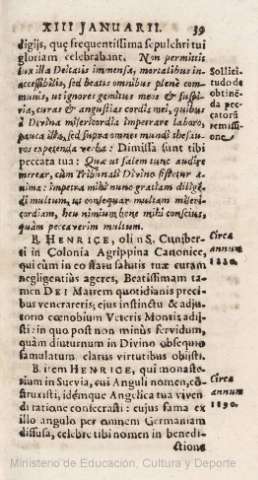 XIII JANUARII. 39
digijs, quę frequentissima sepulchri tui
gloriam celebrabant. Non permittis
lux illa Deitatis immensa, mortalibus in-
accessibilis, sed beatis omnibus plenè com-
munis, ut ignores gemitus meos & suspi-
ria, curas & angustias cordis mei, quibus
à Divina misericordia impetrare laboro,
pauca illa, sed supra omnes mundi thesau-
ros expetenda verba: Dimissa sunt tibi
peccata tua: Quæ ut salem tunc audire
merear, cùm Tribunali Divino sistetur a-
nima: impetra mihi nunc gratiam diligen-
di multum, ut consequar multam miseri-
cordiam, heu nimium bene mihi conscius,
quàm peccaverim multum.
Sollici-
tudo de
obtinē-
da pec-
catorū
remissi-
one.
B. HENRICE, oli n S. Cuniber-
ti in Colonia Agrippina Canonice,
qui cùm in eo statu salutis tuæ curam
negligentiùs ageres, Beatissimam ta-
men DEI Matrem quotidianis preci-
bus venerareris; ejus instinctu & adju-
torio cœnobium Veteris Montis adji-
sti: in quo post non minùs fervidum,
quàm diuturnum in Divino obsequio
famulatum clarus virtutibus obijsti.
Circa
annum
1220.
B. item HENRICE, qui monaste-
rium in Suevia, cui Anguli nomen, cō-
struxisti, idémque Angelica tua viven-
di ratione consecrasti: cujus fama ex
illo angulo per omnem Germaniam
diffusa, celebre tibi nomen in benedi-
ctione
Circa
annum
1190.
Ministerio de Educación, Cultura y Deporte